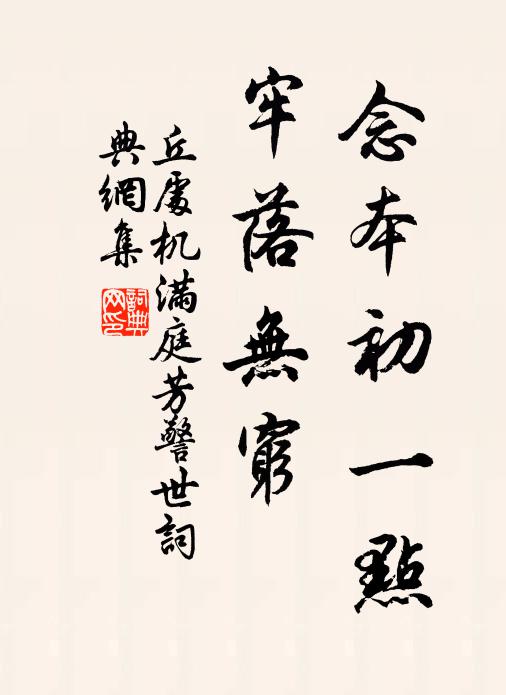 念本初一點
牢落無窮
丘處机滿庭芳警世詞
典網集
詞典網印